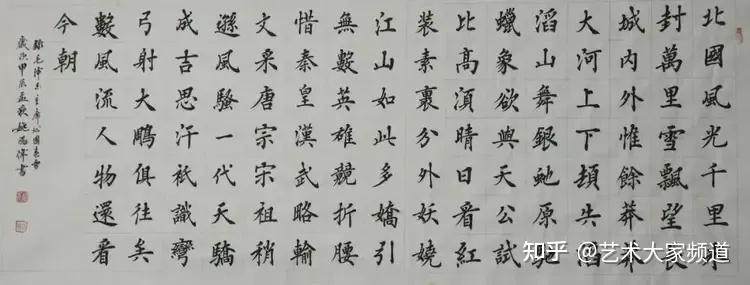 北國風光千里冰
封萬里雪飄望長
城內外惟餘莽莽
大河上下頓失滔
滔山舞銀虵原馳
蠟象欲與天公試
比高湏晴日看紅
裝素裹分外妖嬈
江山如此多嬌引
無數英雄競折腰
惜秦皇漢武略輸
文采唐宗宋祖稍
遜風騷一代天驕
成吉思汗祇識彎
弓射大鵰俱往矣
數風流人物還看
今朝
錄毛澤東主席沁園春雪
歲次甲辰孟秋姚偉書
知乎 @艺术大家频道